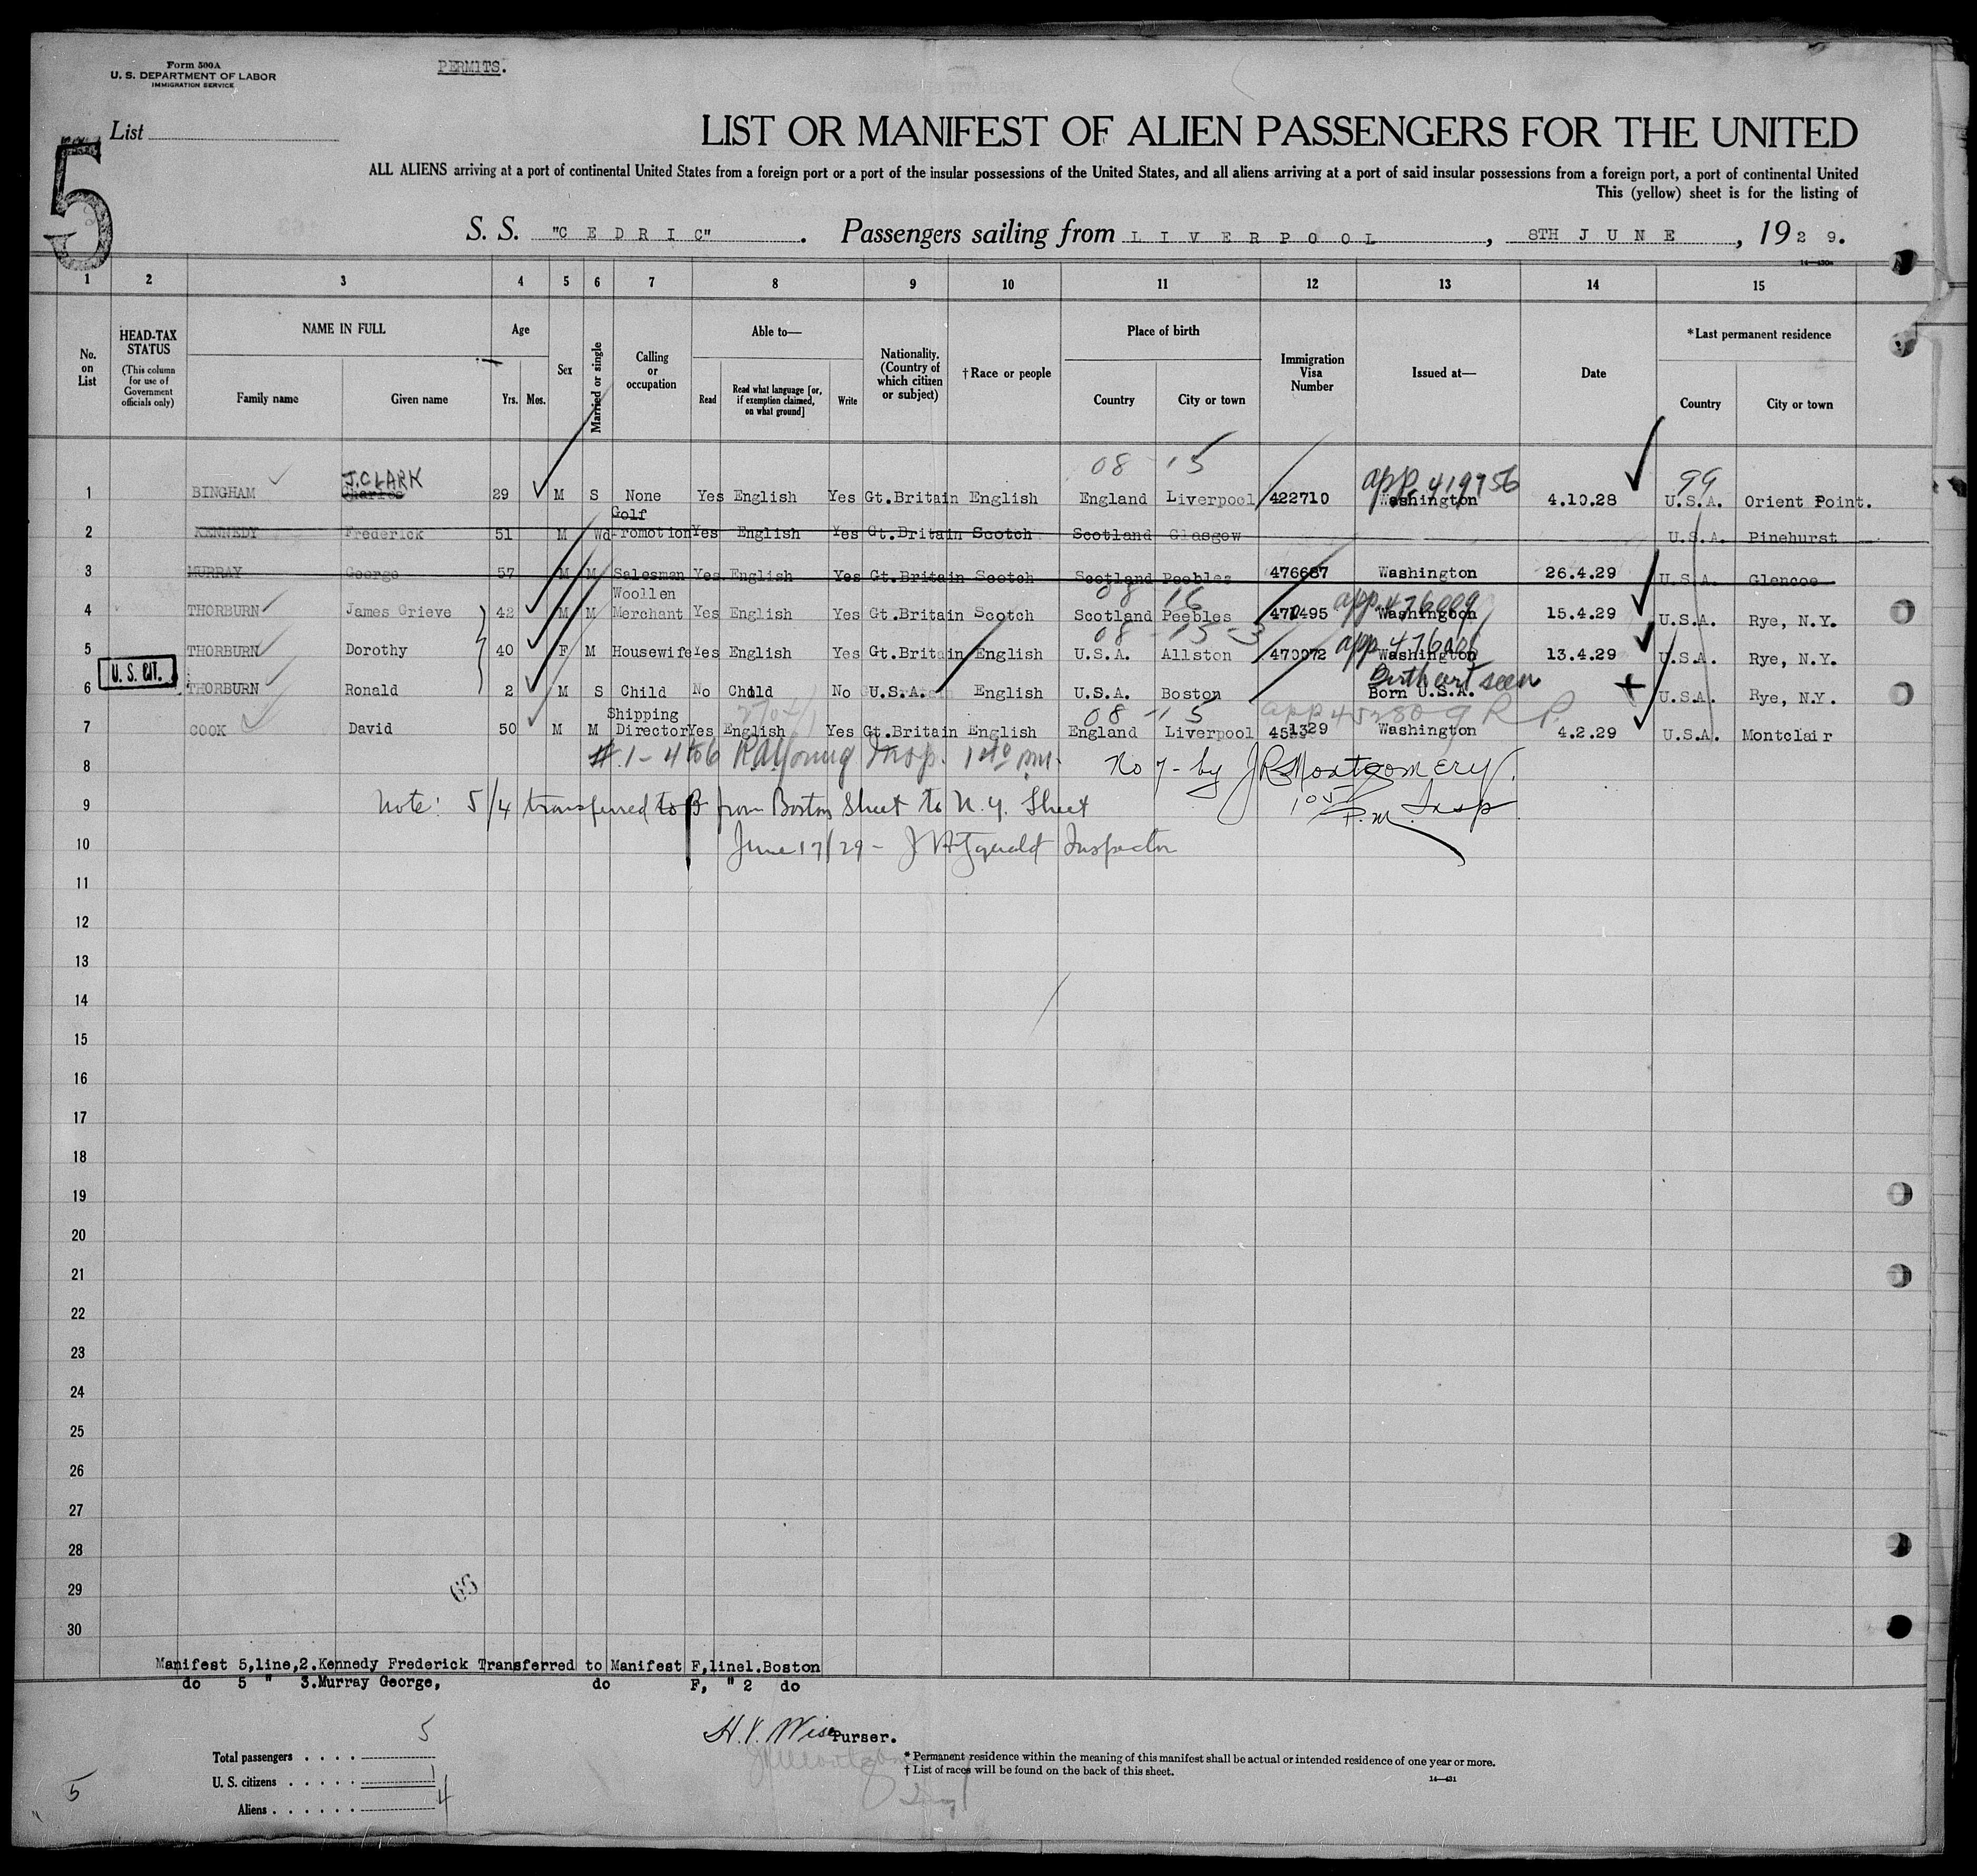 Form 500A
U. S. DEPARTMENT OF LABOR
IMMIGRATION SERVICE
PERMITS.
5
List
LIST OR MANIFEST OF ALIEN PASSENGERS FOR THE UNITED
ALL ALIENS arriving at a port of continental United States from a foreign port or a port of the insular possessions of the United States, and all aliens arriving at a port of said insular possessions from a foreign port, a port of continental United
This (yellow) sheet is for the listing of
S. S. "CEDRIC". Passengers sailing from LIVERPOOL, 8TH JUNE, 1929.
1 2 3 4 5 6 7 8 9 10 11 12 13 14 15
No. on List
HEAD-TAX STATUS (This column for use of Government officials only)
NAME IN FULL
Family name Given name
Age
Yrs. Mos.
Sex
Married or single
Calling or occupation
Able to—
Read Read what language [or, if exemption claimed, on what ground] Write
Nationality. (Country of which citizen or subject)
†Race or people
Place of birth
Country City or town
Immigration Visa Number
Issued at—
Date
*Last permanent residence
Country City or town
08 - 15
J.CLARK app. 419756 99
1 BINGHAM Charles 29 M S None Yes English Yes Gt.Britain English England Liverpool 422710 Washington 4.10.28 U.S.A. Orient Point.
Golf
2 KENNEDY Frederick 51 M Wd Promotion Yes English Yes Gt.Britain Scotch Scotland Glasgow U.S.A. Pinehurst
3 MURRAY George 57 M M Salesman Yes English Yes Gt.Britain Scotch Scotland Peebles 476687 Washington 26.4.29 U.S.A. Glencoe
Woollen 08 16 app. 476009
4 THORBURN James Grieve 42 M M Merchant Yes English Yes Gt.Britain Scotch Scotland Peebles 471495 Washington 15.4.29 U.S.A. Rye, N.Y.
08 - 15 - 3 app
5 THORBURN Dorothy 40 F M Housewife Yes English Yes Gt.Britain English U.S.A. Allston 470072 Washington 13.4.29 U.S.A. Rye, N.Y.
U.S. CIT. Birth cert seen
6 THORBURN Ronald 2 M S Child No Child No U.S.A. English U.S.A. Boston Born U.S.A. U.S.A. Rye, N.Y.
Shipping 08 - 15
7 COOK David 50 M M Director Yes English Yes Gt.Britain English England Liverpool Washington 4.2.29 U.S.A. Montclair
8 #1-4 to 6 Insp. No 7 - by J R Montgomery
9 Note: 5/4 transferred from Boston Sheet to N.Y. Sheet P.M. Insp.
10 June 17/29 - J Fitzgerald Inspector
11
12
13
14
15
16
17
18
19
20
21
22
23
24
25
26
27
28
29
30
Manifest 5,line,2.Kennedy Frederick Transferred to Manifest F,line1.Boston
do 5 " 3.Murray George, do F, " 2 do
H. V. Wise Purser.
Total passengers . . . . 5
U. S. citizens . . . . . 1
Aliens . . . . . . 4
5
* Permanent residence within the meaning of this manifest shall be actual or intended residence of one year or more.
† List of races will be found on the back of this sheet.
14—431